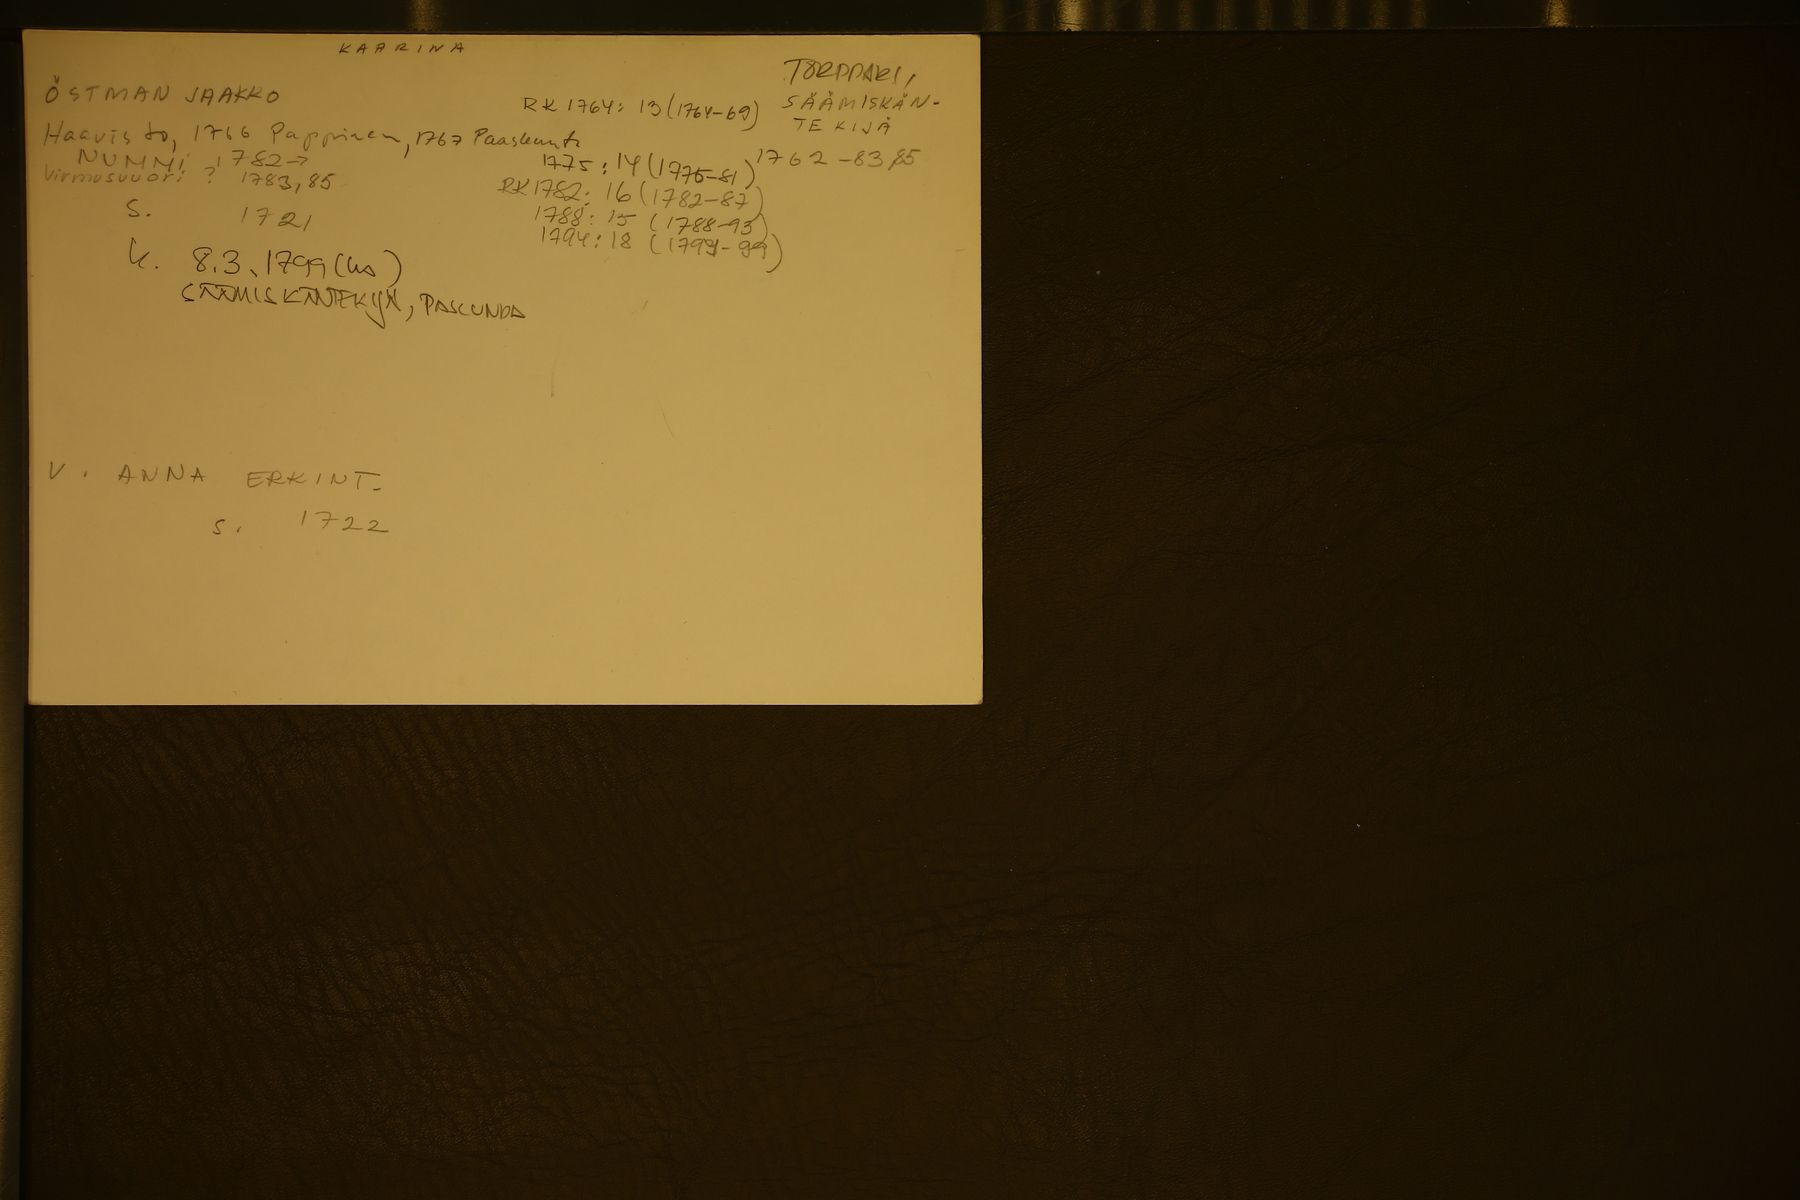 KAARINA
ÖSTMAN JAAKKO
RK 1764: 13 (1764-69)
TORPPARI,
SÄÄMISKÄN-
TEKIJÄ
1762-83,85
Haavisto, 1766 Pappinen, 1767 Paaskunta
NUMMI 1782→
Virmusvuori ? 1783, 85
1775: 14 (1775-81)
RK 1782: 16 (1782-87)
1788: 15 (1788-93)
1794: 18 (1794-99)
S. 1721
k. 8.3.1799 (ks)
SÄÄMISKÄNTEKIJÄ, PASCUNDA
V. ANNA ERKINT.
S. 1722